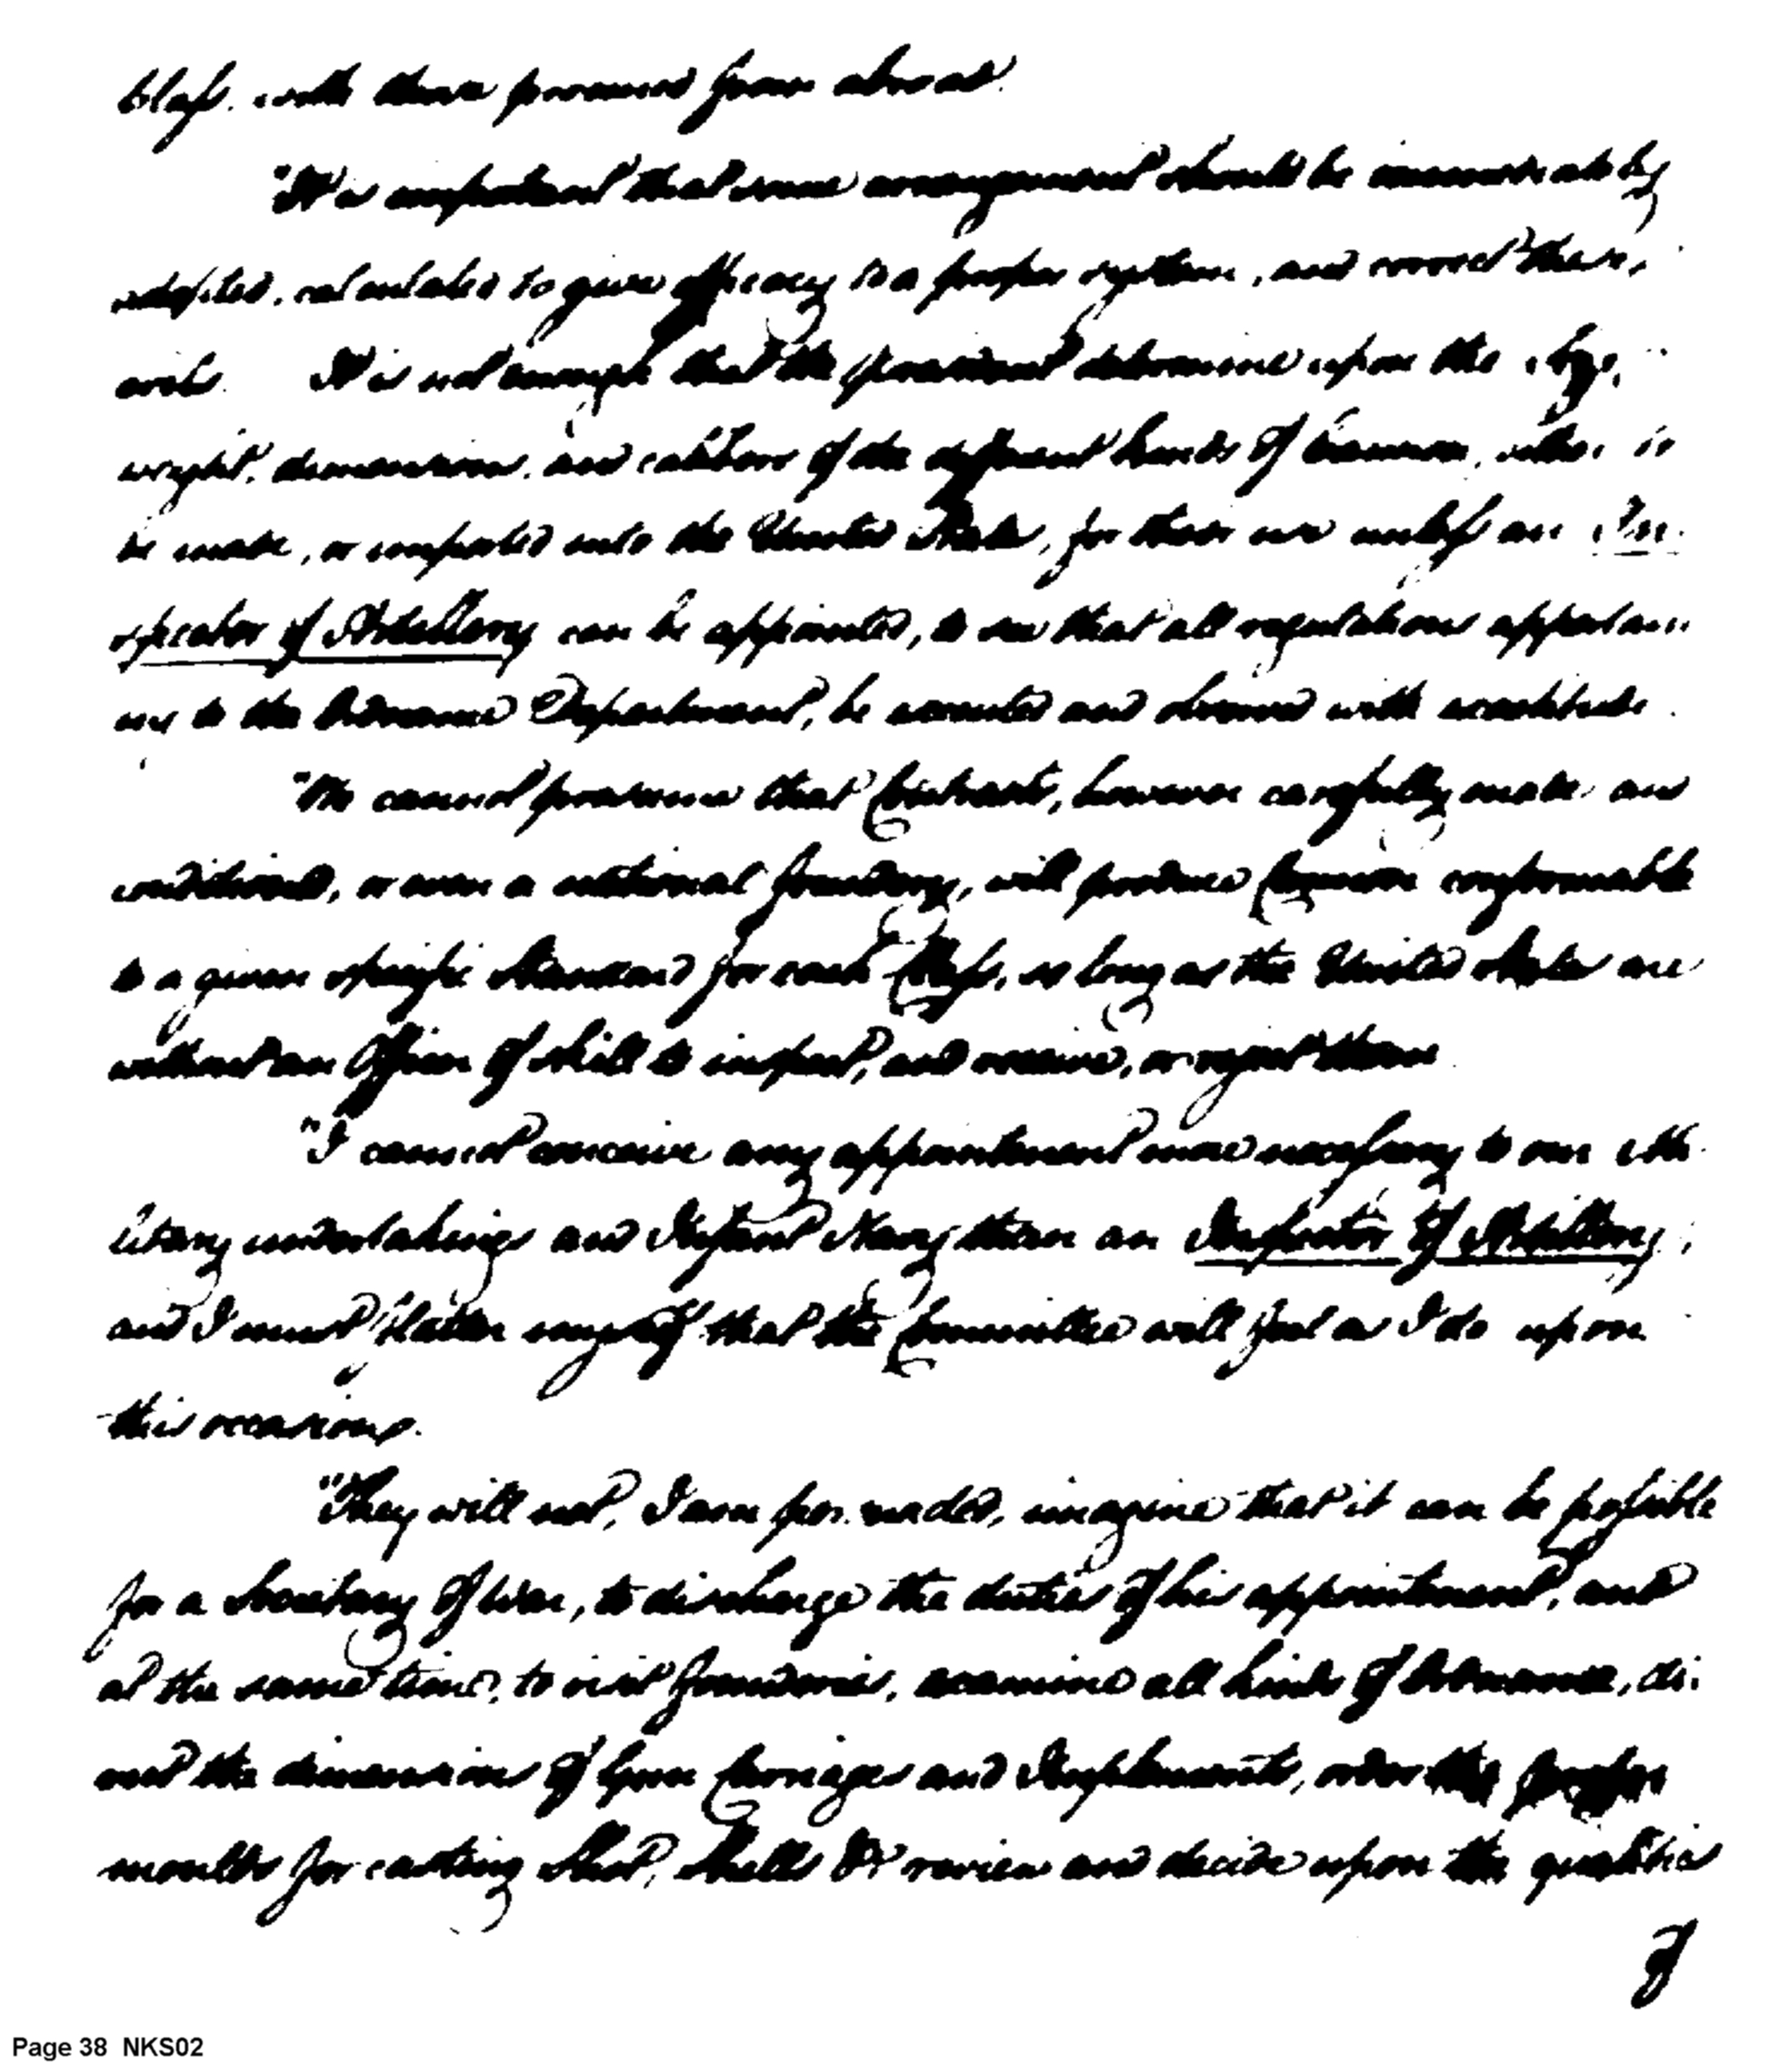 Class. with those procured from abroad.
"It is important that some arrangement should be immediately
adopted, calculated to give efficacy to a proper system, and correct these
evils. It is not enough that the President determine upon the
weight, dimensions, and calibers of the different kinds of Cannon, to
be made, or imported into the United States, for their use unless an In-
spector of Artillery can be appointed, to see that all regulations appertain
ing to the Ordnance Department, be executed and observed with exactitude.
"We cannot presume that Contracts, however carefully made and
conditioned, or even a national foundery, will produce Cannon conformable
to a given specific standard for each Class, as long as the United States are
without an Officer of skill to inspect, and receive, or reject them.
"I cannot conceive any appointment more necessary to our Mi-
litary undertakings and Infant Navy than an Inspector of Artillery;
and I must flatter myself that the Committee will feel as I do upon
this occasion.
"They will not, I am persuaded, imagine that it can be possible
for a Secretary of War, to discharge the duties of his appointment, and
at the same time, to visit founderies, examine all kinds of Ordnance, di-
rect the dimensions of Gun Carriages and Implements, order the proper
moulds for casting Shot, Shells &c review and decide upon the qualities
of
Page 38 NKS02